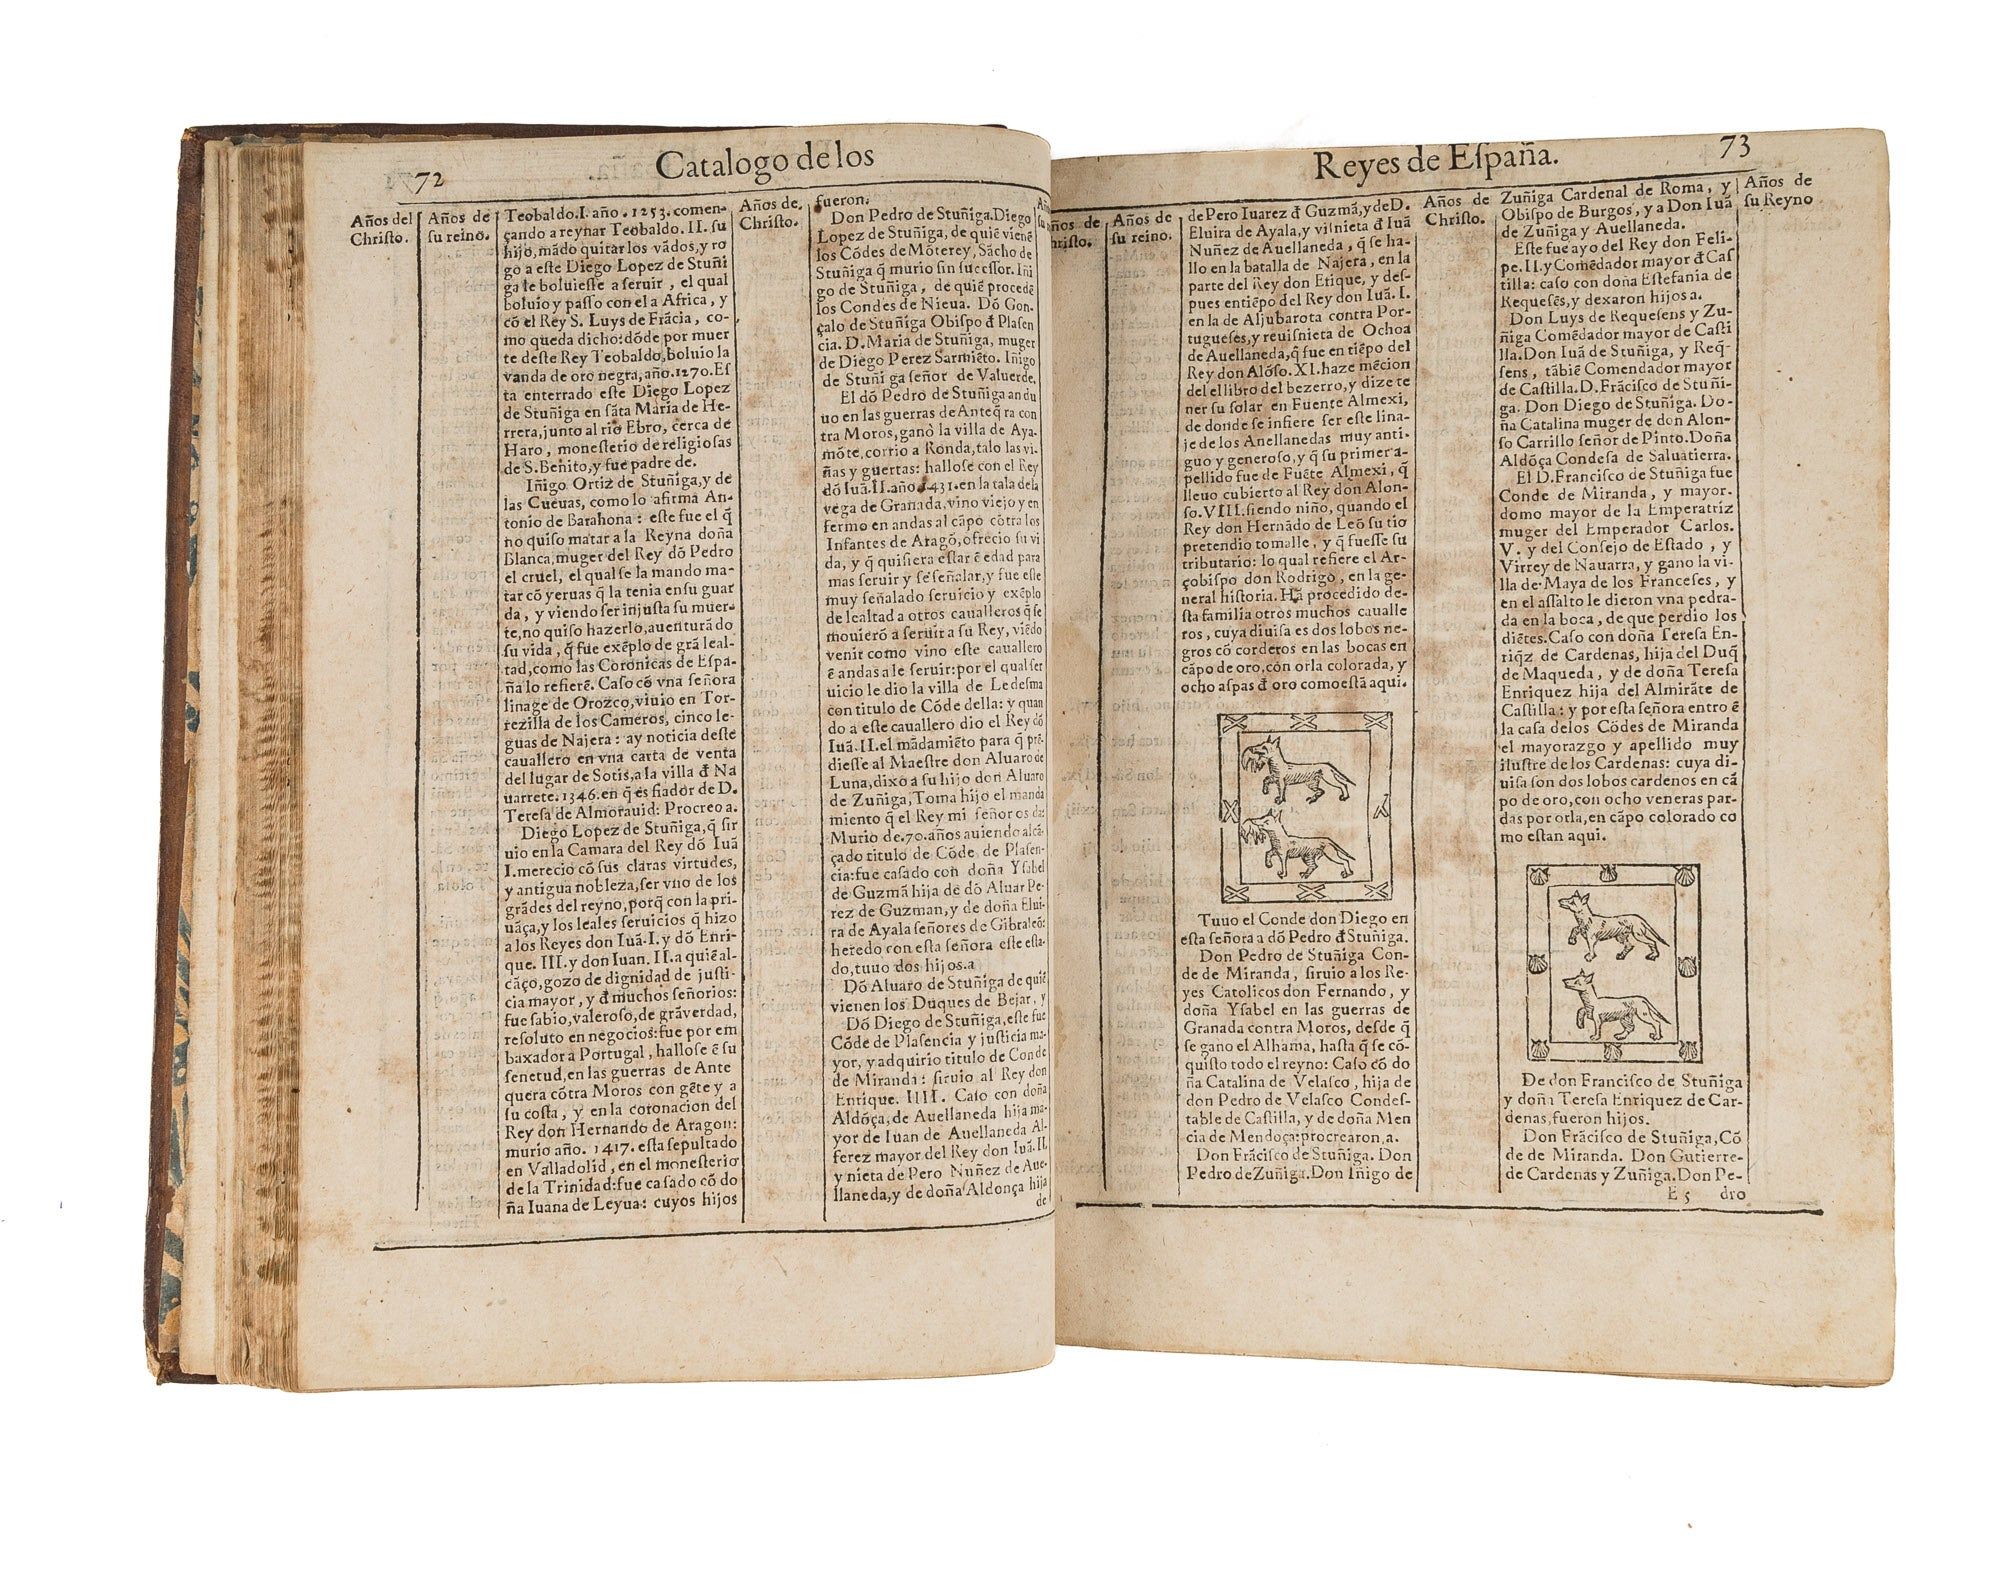 72
Catalogo de los
Años del
Christo.
Años de
su reino.
Teobaldo.I. año.1253.comen-
çando a reynar Teobaldo.II.su
hijo, mãdo quitar los vãdos, y ro
gò a este Diego Lopez de Stuñi
ga le boluiesse a seruir, el qual
boluio y passo con el a Africa, y
cõ el Rey S. Luys de Frãcia, co-
mo queda dicho: dõde por muer
te deste Rey Teobaldo, boluio la
vanda de oro negra, año.1270.Es
ta enterrado este Diego Lopez
de Stuñiga en sãta Maria de He-
rrera, junto al rio Ebro, cerca de
Haro, monesterio de religiosas
de S.Benito, y fue padre de.
Iñigo Ortiz de Stuñiga, y de
las Cueuas, como lo afirma An-
tonio de Barahona: este fue el q̃
no quiso matar a la Reyna doña
Blanca, muger del Rey dõ Pedro
el cruel, el qual se la mando ma-
tar cõ yeruas q̃ la tenia en su guar
da, y viendo ser injusta su muer-
te, no quiso hazerlo, auenturãdo
su vida, q̃ fue exẽplo de grã leal-
tad, como las Coronicas de Espa-
ña lo refierẽ. Caso cõ vna señora
linage de Orozco, viuio en Tor-
rezilla de los Cameros, cinco le-
guas de Najera: ay noticia deste
cauallero en vna carta de venta
del lugar de Sotis, a la villa đ Na
uarrete.1346.en q̃ es fiador de D.
Teresa de Almorauid: Procreo a.
Diego Lopez de Stuñiga, q̃ sir
uio en la Camara del Rey dõ Iuã
I.merecio cõ sus claras virtudes,
y antigua nobleza, ser vno de los
grãdes del reyno, porq̃ con la pri-
uãça, y los leales seruicios q̃ hizo
a los Reyes don Iuã.I.y dõ Enri-
que. III.y don Iuan. II.a quiẽ al-
cãço, gozo de dignidad de justi-
cia mayor, y đ muchos señorios:
fue sabio, valeroso, de grãverdad,
resoluto en negocios: fue por em
baxador a Portugal, hallose ẽ su
senetud, en las guerras de Ante
quera cõtra Moros con gẽte y a
su costa, y en la coronacion del
Rey don Hernando de Aragon:
murio año. 1417. esta sepultado
en Valladolid, en el monesterio
de la Trinidad: fue casado cõ do
ña Iuana de Leyua: cuyos hijos
Años de
Christo.
fueron.
Don Pedro de Stuñiga. Diego
Lopez de Stuñiga, de quiẽ vienẽ
los Cõdes de Mõterey, Sãcho de
Stuñiga q̃ murio sin successor. Iñi
go de Stuñiga, de quiẽ procedẽ
los Condes de Nieua. Dõ Gon-
çalo de Stuñiga Obispo đ Plasen
cia. D. Maria de Stuñiga, muger
de Diego Perez Sarmiẽto. Iñigo
de Stuñiga señor de Valuerde.
El dõ Pedro de Stuñiga andu
uo en las guerras de Anteq̃ra con
tra Moros, ganò la villa de Aya-
mõte, corrio a Ronda, talo las vi-
ñas y guertas: hallose con el Rey
dõ Iuã.II.año.1431.en la tala de la
vega de Granada, vino viejo y en
fermo en andas al cãpo cõtra los
Infantes de Aragõ, ofrecio su vi
da, y q̃ quisiera estar ẽ edad para
mas seruir y se señalar, y fue este
muy señalado seruicio y exẽplo
de lealtad a otros caualleros q̃ se
mouierõ a seruir a su Rey, viẽdo
venir como vino este cauallero
ẽ andas a le seruir: por el qual ser
uicio le dio la villa de Ledesma
con titulo de Cõde della: y quan
do a este cauallero dio el Rey dõ
Iuã.II.el mãdamiẽto para q̃ prẽ-
diesse al Maestre don Aluaro de
Luna, dixo a su hijo don Aluaro
de Zuñiga, Toma hijo el manda
miento q̃ el Rey mi señor os da:
Murio de.70.años auiendo alcã-
çado titulo de Cõde de Plasen-
cia: fue casado con doña Ysabel
de Guzmã hija de dõ Aluar Pe-
rez de Guzman, y de doña Elui-
ra de Ayala señores de Gibraleõ:
heredo con esta señora este esta-
do, tuuo dos hijos.a
Dõ Aluaro de Stuñiga de quiẽ
vienen los Duques de Bejar, y
Dõ Diego de Stuñiga, este fue
Cõde de Plasencia y justicia ma-
yor, y adquirio titulo de Conde
de Miranda: siruio al Rey don
Enrique. IIII. Caso con doña
Aldõça, de Auellaneda hija ma-
yor de Iuan de Auellaneda Al-
ferez mayor del Rey don Iuã.II.
y nieta de Pero Nuñez de Aue-
llaneda, y de doña Aldonça hija
de
Reyes de España.
73
Años de
su reino.
de Pero Iuarez đ Guzmã, y de D.
Eluira de Ayala, y visnieta đ Iuã
Nuñez de Auellaneda, q̃ se ha-
llo en la batalla de Najera, en la
parte del Rey don Enrique, y des-
pues en tiẽpo del Rey don Iuã. I.
en la de Aljubarota contra Por-
tugueses, y reuisnieta de Ochoa
de Auellaneda, q̃ fue en tiẽpo del
Rey don Alõso. XI. haze mẽcion
del el libro del bezerro, y dize te
ner su solar en Fuente Almexi,
de donde se infiere ser este lina-
je de los Auellanedas muy anti-
guo y generoso, y q̃ su primer a-
pellido fue de Fuẽte Almexi, q̃
lleuo cubierto al Rey don Alon-
so.VIII.siendo niño, quando el
Rey don Hernãdo de Leõ su tio
pretendio tomalle, y q̃ fuesse su
tributario: lo qual refiere el Ar-
çobispo don Rodrigo, en la ge-
neral historia. Hã procedido de-
sta familia otros muchos caualle
ros, cuya diuisa es dos lobos ne-
gros cõ corderos en las bocas en
cãpo de oro, con orla colorada, y
ocho aspas đ oro como està aqui.
Tuuo el Conde don Diego en
esta señora a dõ Pedro đ Stuñiga.
Don Pedro de Stuñiga Con-
de de Miranda, siruio a los Re-
yes Catolicos don Fernando, y
doña Ysabel en las guerras de
Granada contra Moros, desde q̃
se gano el Alhama, hasta q̃ se cõ-
quisto todo el reyno: Caso cõ do
ña Catalina de Velasco, hija de
don Pedro de Velasco Condes-
table de Castilla, y de doña Men
cia de Mendoça: procrearon, a.
Don Frãcisco de Stuñiga. Don
Pedro de Zuñiga. Don Iñigo de
Años de
Christo.
Zuñiga Cardenal de Roma, y
Obispo de Burgos, y a Don Iuã
de Zuñiga y Auellaneda.
Este fue ayo del Rey don Feli-
pe.II.y Comẽdador mayor đ Cas
tilla: caso con doña Estefania de
Requesẽs, y dexaron hijos a.
Don Luys de Requesens y Zu-
ñiga Comẽdador mayor de Casti
lla. Don Iuã de Stuñiga, y Req̃-
sens, tãbiẽ Comendador mayor
de Castilla. D. Frãcisco de Stuñi-
ga. Don Diego de Stuñiga. Do-
ña Catalina muger de don Alon-
so Carrillo señor de Pinto. Doña
Aldõça Condesa de Saluatierra.
El D.Francisco de Stuñiga fue
Conde de Miranda, y mayor-
domo mayor de la Emperatriz
muger del Emperador Carlos.
V. y del Consejo de Estado, y
Virrey de Nauarra, y gano la vi-
lla de Maya de los Franceses, y
en el assalto le dieron vna pedra-
da en la boca, de que perdio los
diẽtes. Caso con doña Teresa En-
riq̃z de Cardenas, hija del Duq̃
de Maqueda, y de doña Teresa
Enriquez hija del Almirãte de
Castilla: y por esta señora entro ẽ
la casa de los Cõdes de Miranda
el mayorazgo y apellido muy
ilustre de los Cardenas: cuya di-
uisa son dos lobos cardenos en cã
po de oro, con ocho veneras par-
das por orla, en cãpo colorado co
mo estan aqui.
De don Francisco de Stuñiga
y doña Teresa Enriquez de Car-
denas, fueron hijos.
Don Frãcisco de Stuñiga, Cõ
de de Miranda. Don Gutierre-
de Cardenas y Zuñiga. Don Pe-
E 5 dro
Años de
su Reyno